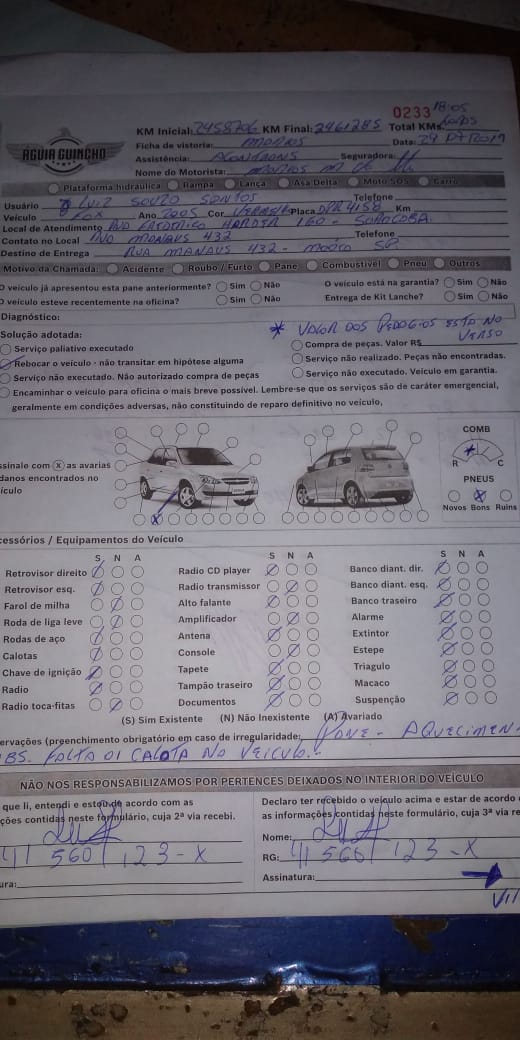 0233 18:05
ÁGUIA GUINCHO
KM Inicial: 2458706 KM Final: 2461285 Total KMs:
Ficha de vistoria: Data:
Assistência: Seguradora:
Nome do Motorista:
Plataforma hidráulica Rampa Lança Asa Delta Moto SOS Carro
Usuário Luiz Souza Santos Telefone
Veículo Fox Ano 2005 Cor Placa Km
Local de Atendimento 160 - SOROCABA
Contato no Local MANAUS 432 Telefone
Destino de Entrega RUA MANAUS 432 - SP
Motivo da Chamada: Acidente Roubo / Furto Pane Combustível Pneu Outros
O veículo já apresentou esta pane anteriormente? Sim Não O veículo está na garantia? Sim Não
O veículo esteve recentemente na oficina? Sim Não Entrega de Kit Lanche? Sim Não
Diagnóstico:
* VALOR DOS PEDAGIOS ESTA NO VERSO
Solução adotada:
Serviço paliativo executado Compra de peças. Valor R$
Rebocar o veículo - não transitar em hipótese alguma Serviço não realizado. Peças não encontradas.
Serviço não executado. Não autorizado compra de peças Serviço não executado. Veículo em garantia.
Encaminhar o veículo para oficina o mais breve possível. Lembre-se que os serviços são de caráter emergencial,
geralmente em condições adversas, não constituindo de reparo definitivo no veículo,
COMB
R C
ssinale com X as avarias
danos encontrados no
ículo
PNEUS
Novos Bons Ruins
cessórios / Equipamentos do Veículo
S N A S N A S N A
Retrovisor direito Radio CD player Banco diant. dir.
Retrovisor esq. Radio transmissor Banco diant. esq.
Farol de milha Alto falante Banco traseiro
Roda de liga leve Amplificador Alarme
Rodas de aço Antena Extintor
Calotas Console Estepe
Chave de ignição Tapete Triagulo
Radio Tampão traseiro Macaco
Radio toca-fitas Documentos Suspenção
(S) Sim Existente (N) Não Inexistente (A) Avariado
ervações (preenchimento obrigatório em caso de irregularidade: PANE - AQUECIMEN
BS. FALTA 01 CALOTA NO VEICULO.
NÃO NOS RESPONSABILIZAMOS POR PERTENCES DEIXADOS NO INTERIOR DO VEÍCULO
que li, entendi e estou de acordo com as
ções contidas neste formulário, cuja 2ª via recebi.
Declaro ter recebido o veículo acima e estar de acordo
as informações contidas neste formulário, cuja 3ª via re
Nome:
41 560 123-X RG: 41 560 123-X
ura: Assinatura: